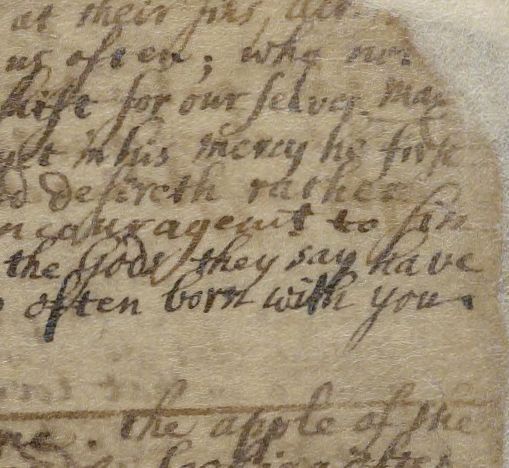 at their sins,
us often; who
shift for our selves. may
yet in his mercy he first
desireth rather
ncouragemt to sin
the Gods they say have
often born with you.
me. the apple of the